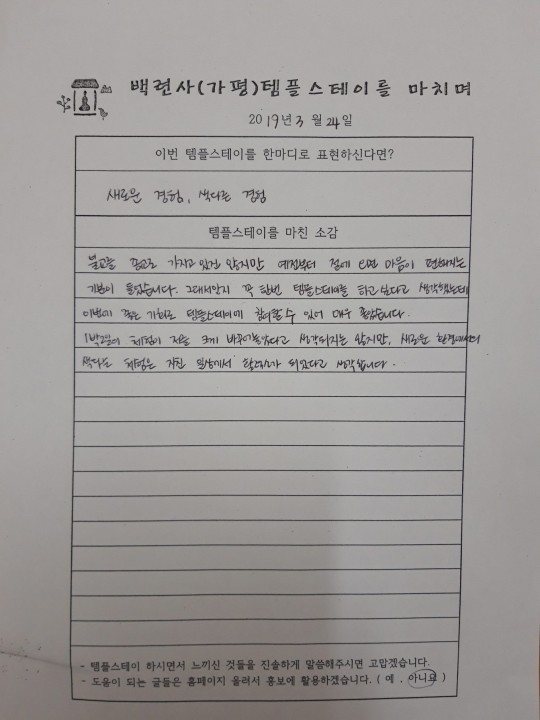 백련사(가평)템플스테이를 마치며
2019년 3월 24일
이번 템플스테이를 한마디로 표현하신다면?
새로운 경험, 색다른 경험
템플스테이를 마친 소감
불교를 종교로 가지고 있진 않지만 예전부터 절에 오면 마음이 편해지는
기분이 들었습니다. 그래서인지 꼭 한번 템플스테이를 하고싶다고 생각했는데
이번에 좋은 기회로 템플스테이에 참여할 수 있어 매우 좋았습니다.
1박2일의 체험이 저를 크게 바꾸어놓았다고 생각되지는 않지만, 새로운 환경에서의
색다른 체험은 지친 일상에서 활력소가 되었다고 생각됩니다.
- 템플스테이 하시면서 느끼신 것들을 진솔하게 말씀해주시면 고맙겠습니다.
- 도움이 되는 글들은 홈페이지 올려서 홍보에 활용하겠습니다. ( 예 , 아니요 )